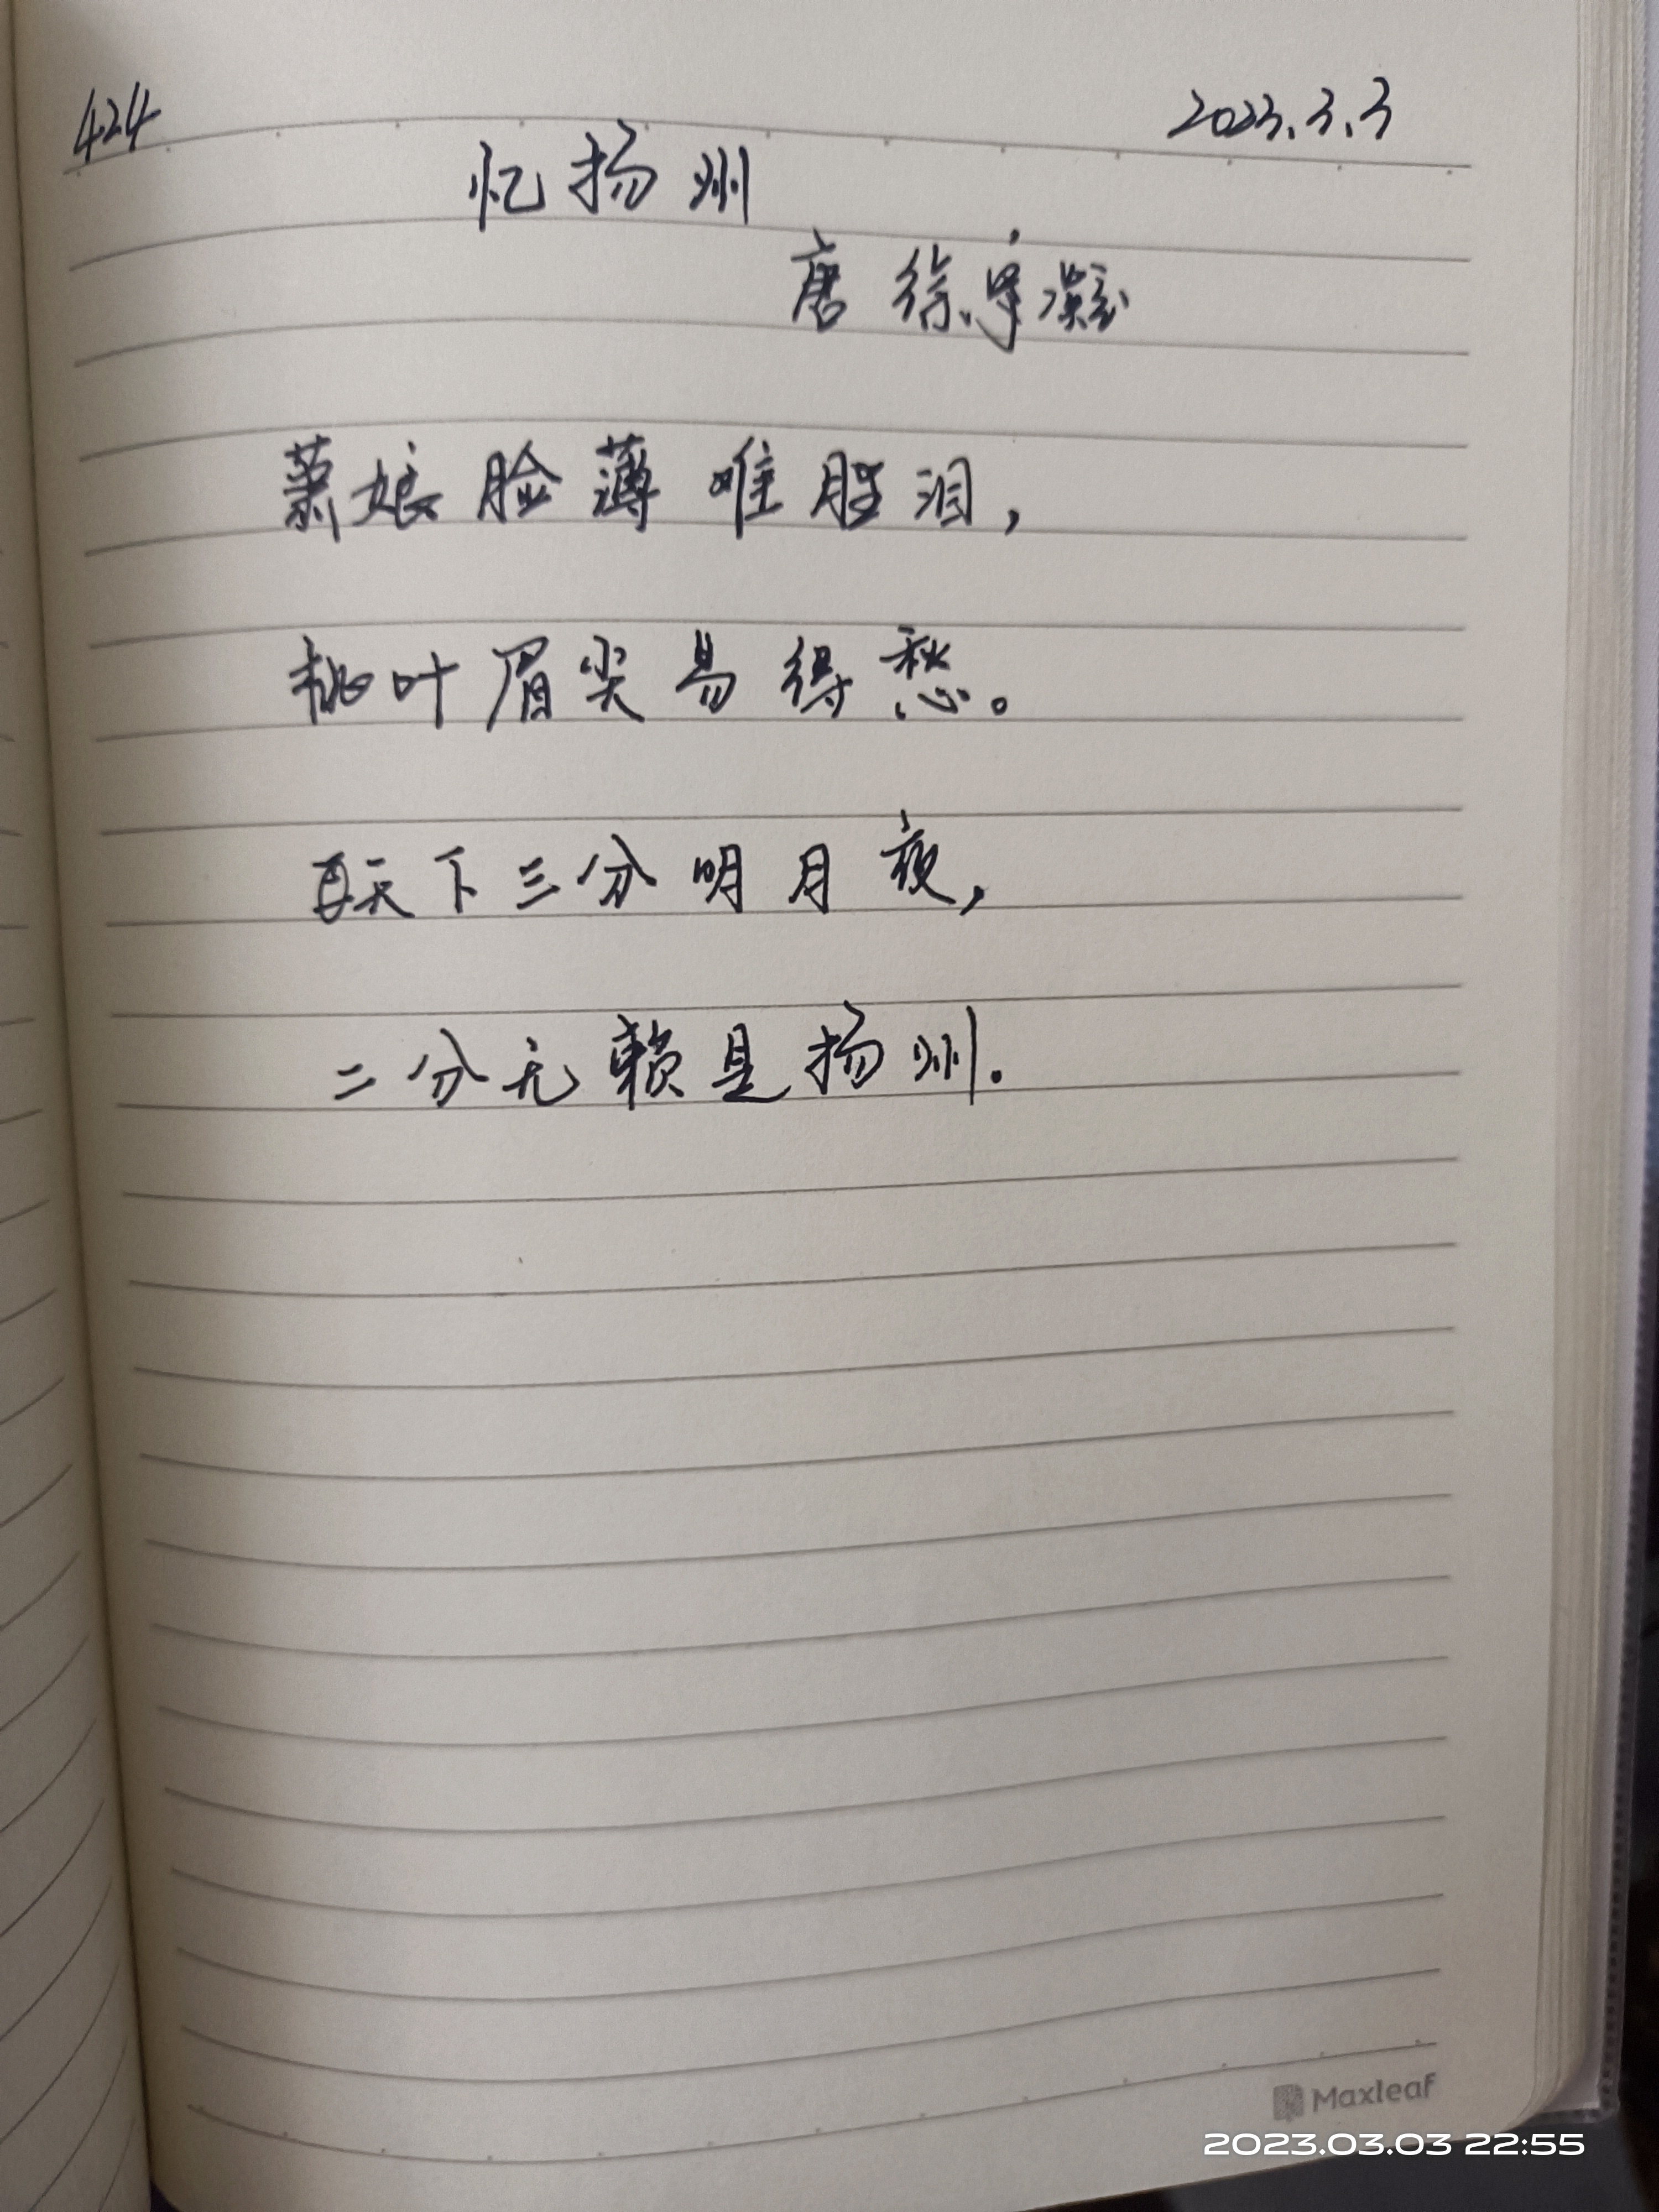 424
2023.3.3
忆扬州
唐 徐凝
萧娘脸薄唯胜泪,
桃叶眉尖易得愁。
天下三分明月夜,
二分无赖是扬州.
Maxleaf
2023.03.03 22:55